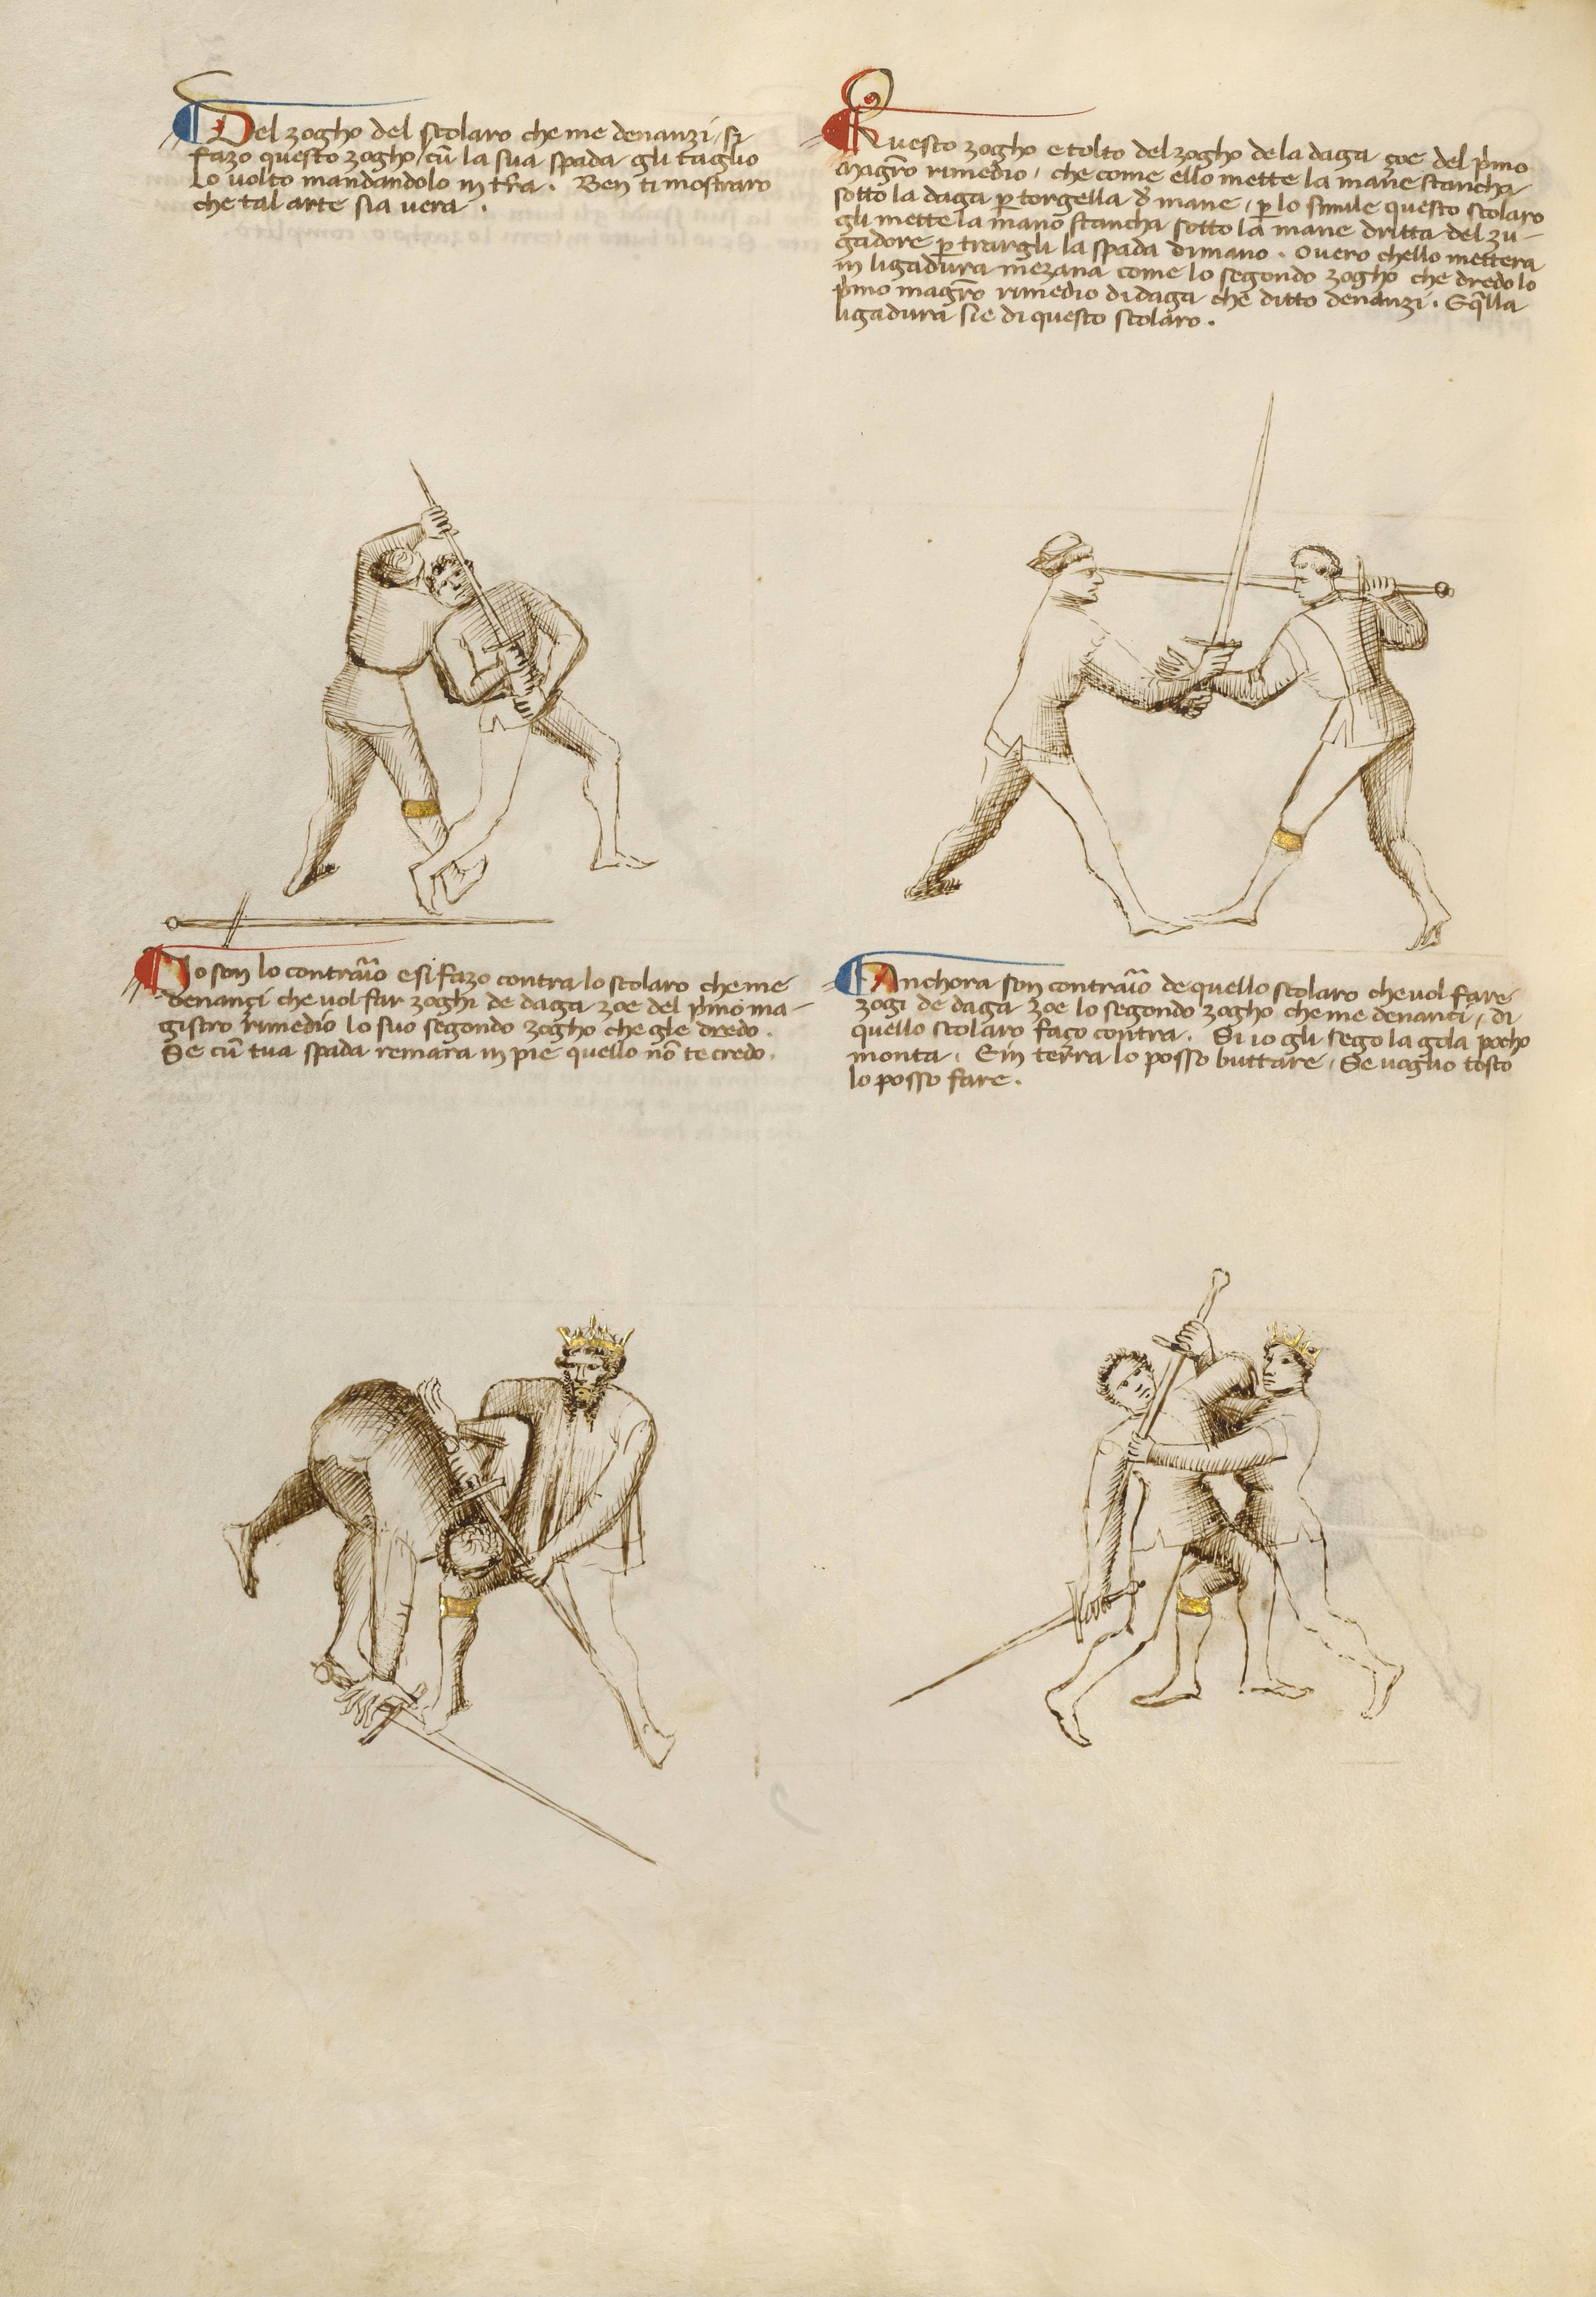 Del zogho del scolaro che me denanzi, si
fazo questo zogho, cū la sua spada gli taglio
Lo volto mandandolo in tr̄a. Ben ti mostraro
che tal arte sia vera.
Questo zogho e tolto del zogho de la daga çoe del p̄mo
magr̄o rimedio, che come ello mette la mane stancha
sotto la daga p torgella d̄ mane, p lo simile questo scolaro
gli mette la mano stancha sotto la mane dritta del zu-
gadore p trargli la spada di mano. Overo chello mettera
in ligadura mezana come lo segondo zogho che dredo lo
p̄mo magr̄o rimedio di daga che ditto denanzi. E q̄lla
ligadura sie di questo scolaro.
Io son lo contrār̄io e si fazo contra lo scolaro che me
denançi che vol far zoghi de daga zoe del p̄mo ma-
gistro rimedio lo suo segondo zogho che gle dredo.
Se cū tua spada remara in pie quello nō te credo.
Anchora son contrār̄io de quello scolaro che vol fare
zogi de daga zoe lo segondo zogho che me denançi, di
quello scolaro faço contra. Si io gli sego la gola pocho
monta. E in terra lo posso buttare, Se voglio tosto
lo posso fare.